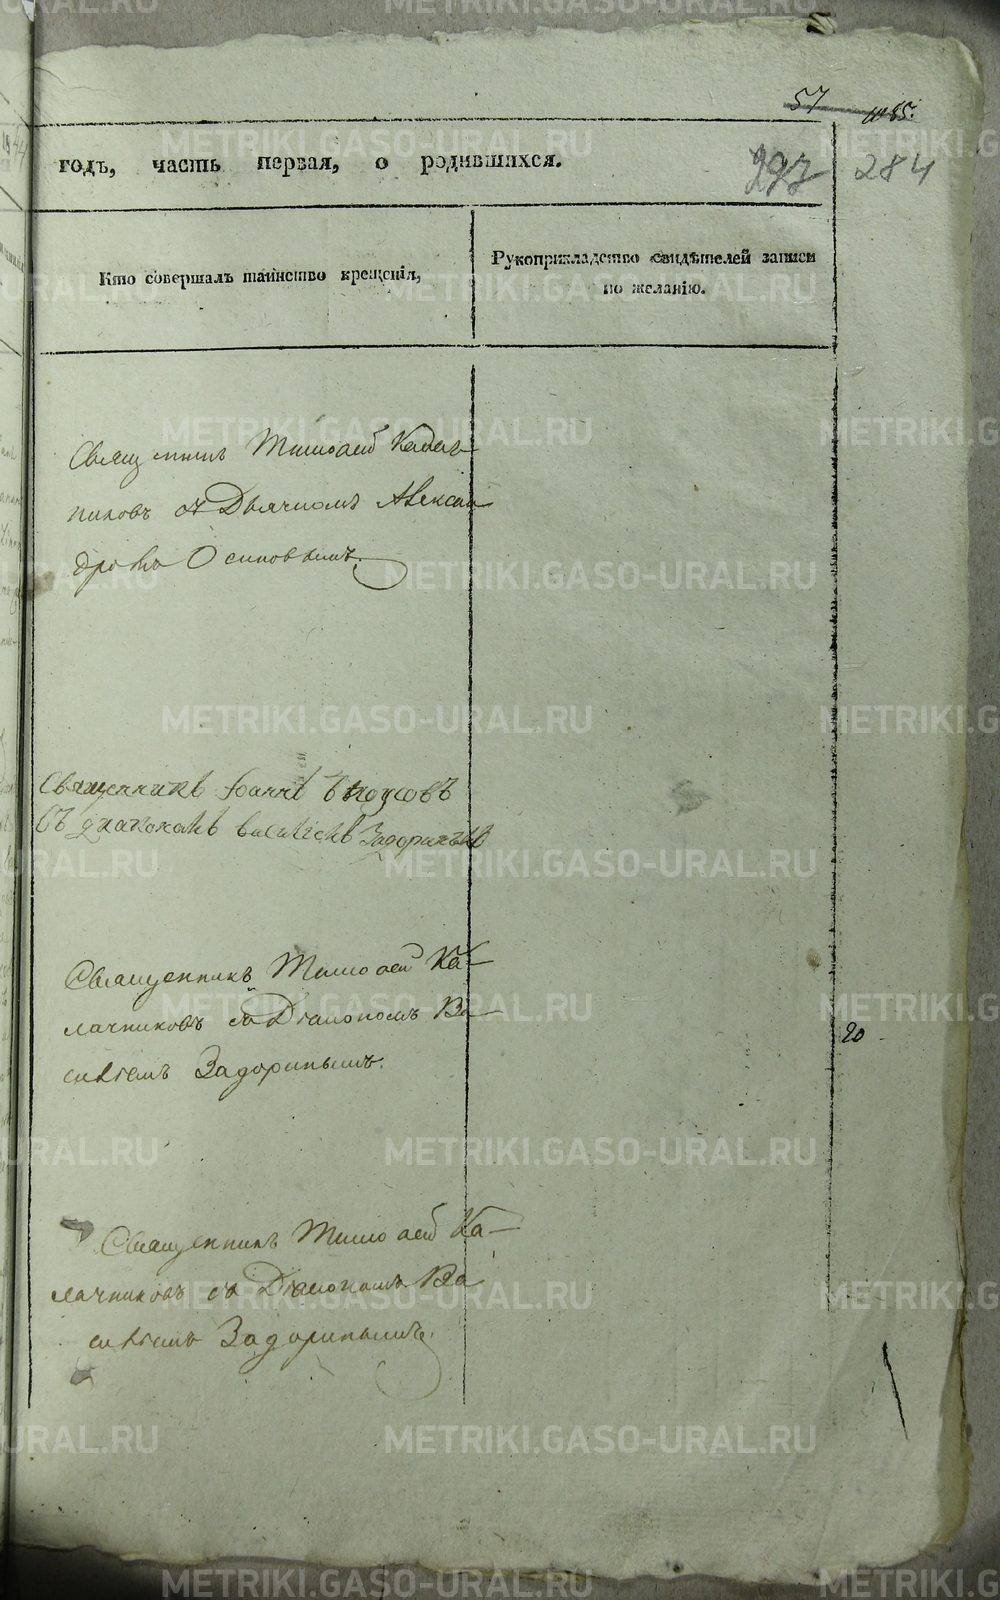 57
годъ, часть первая, о родившихся.
284
Кто совершалъ таинство крещенія,
Рукоприкладство свидѣтелей записи
по желанію.
Священникъ Тимоѳей Калач-
никовъ съ Дьячкомъ Алексан
дромъ Осиповымъ.
Священникъ Іоаннъ
съ диакономъ василіемъ Задоринымъ
Священникъ Тимоѳей Ка-
лачниковъ съ Діакономъ Ва-
силіемъ Задоринымъ.
20
Священникъ Тимоѳей Ка-
лачниковъ съ Діакономъ Ва
силіемъ Задоринымъ.
METRIKI.GASO-URAL.RU